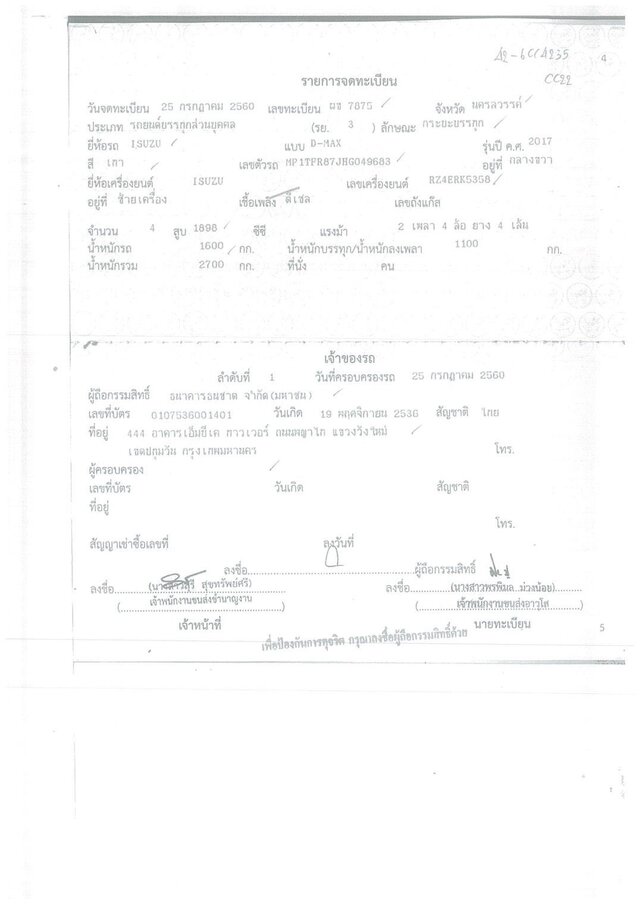 4
CC22
รายการจดทะเบียน
วันจดทะเบียน 25 กรกฎาคม 2560 เลขทะเบียน ผช 7875 จังหวัด นครสวรรค์
ประเภท รถยนต์บรรทุกส่วนบุคคล (รย. 3 ) ลักษณะ กระบะบรรทุก
ยี่ห้อรถ ISUZU แบบ D-MAX รุ่นปี ค.ศ. 2017
สี เทา เลขตัวรถ MP1TFR87JHG049683 อยู่ที่ กลางขวา
ยี่ห้อเครื่องยนต์ ISUZU เลขเครื่องยนต์ RZ4ERK5358
อยู่ที่ ซ้ายเครื่อง เชื้อเพลิง ดีเซล เลขถังแก๊ส
จำนวน 4 สูบ 1898 ซีซี แรงม้า 2 เพลา 4 ล้อ ยาง 4 เส้น
น้ำหนักรถ 1600 กก. น้ำหนักบรรทุก/น้ำหนักลงเพลา 1100 กก.
น้ำหนักรวม 2700 กก. ที่นั่ง คน
เจ้าของรถ
ลำดับที่ 1 วันที่ครอบครองรถ 25 กรกฎาคม 2560
ผู้ถือกรรมสิทธิ์ ธนาคารธนชาต จำกัด(มหาชน)
เลขที่บัตร 0107536001401 วันเกิด 19 พฤศจิกายน 2536 สัญชาติ ไทย
ที่อยู่ 444 อาคารเอ็มบีเค ทาวเวอร์ ถนนพญาไท แขวงวังใหม่
เขตปทุมวัน กรุงเทพมหานคร โทร.
ผู้ครอบครอง
เลขที่บัตร วันเกิด สัญชาติ
ที่อยู่
โทร.
สัญญาเช่าซื้อเลขที่ ลงวันที่
ลงชื่อ ผู้ถือกรรมสิทธิ์
ลงชื่อ สุขทรัพย์ศรี) ลงชื่อ (นางสาวพรพิมล ม่วงน้อย)
(เจ้าพนักงานขนส่งชำนาญงาน) (เจ้าพนักงานขนส่งอาวุโส)
เจ้าหน้าที่ นายทะเบียน
เพื่อป้องกันการทุจริต กรุณาลงชื่อผู้ถือกรรมสิทธิ์ด้วย
5